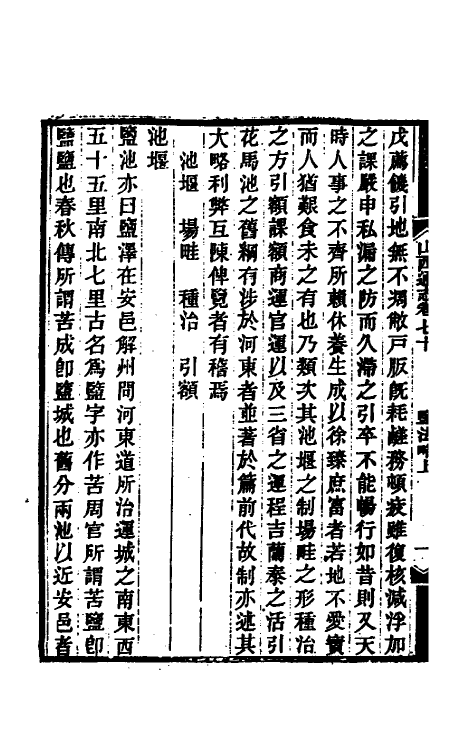 山西通志卷七十 鹽法略上 一
戊薦饑引地無不凋敝戸版旣耗鹺務頓疲雖復核減浮加
之課嚴申私漏之防而久滯之引卒不能暢行如昔則又天
時人事之不齊所賴休養生成以徐臻庶富者若地不愛寶
而人猶艱食未之有也乃類次其池堰之制場畦之形種治
之方引額課額商運官運以及三省之運程吉蘭泰之活引
花馬池之舊綱有涉於河東者並著於篇前代故制亦述其
大略利弊互陳俾覽者有稽焉
池堰 場畦 種治 引額
池堰
鹽池亦曰鹽澤在安邑解州間河東道所治運城之南東西
五十五里南北七里古名爲盬字亦作苦周官所謂苦鹽卽
盬鹽也春秋傳所謂苦成卽鹽城也舊分兩池以近安邑者